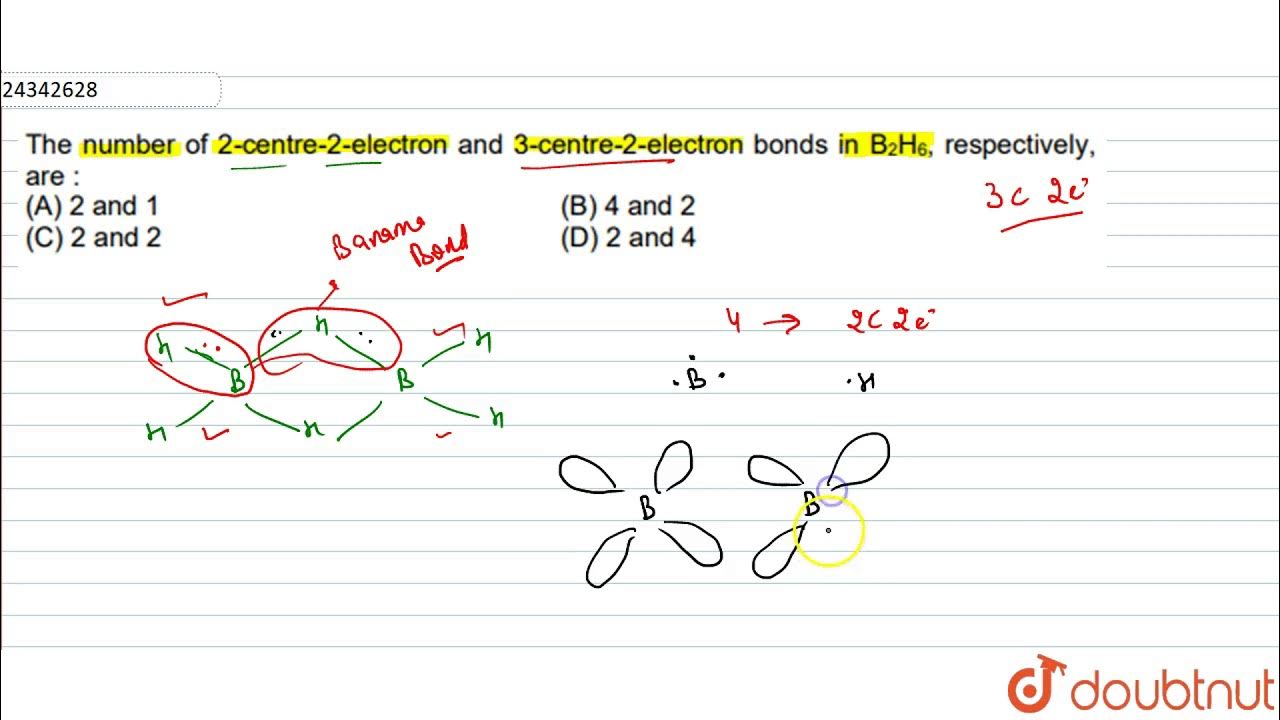 24342628
The number of 2-centre-2-electron and 3-centre-2-electron bonds in B₂H₆, respectively,
are :
(A) 2 and 1
(B) 4 and 2
(C) 2 and 2
(D) 2 and 4
3c 2e⁻
Banana
Bond
4 → 2c 2e⁻
H H H
B B
H H H
·B· ·H
B B
doubtnut